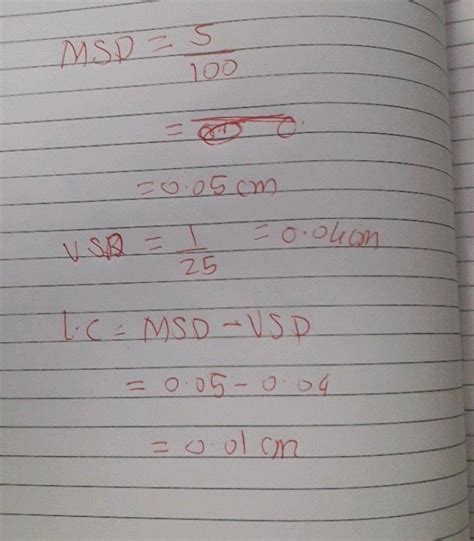 MSD = 5/100
= 0.
= 0.05 cm
VSD = 1/25 = 0.04cm
L.C = MSD - VSD
= 0.05 - 0.04
= 0.01 cm